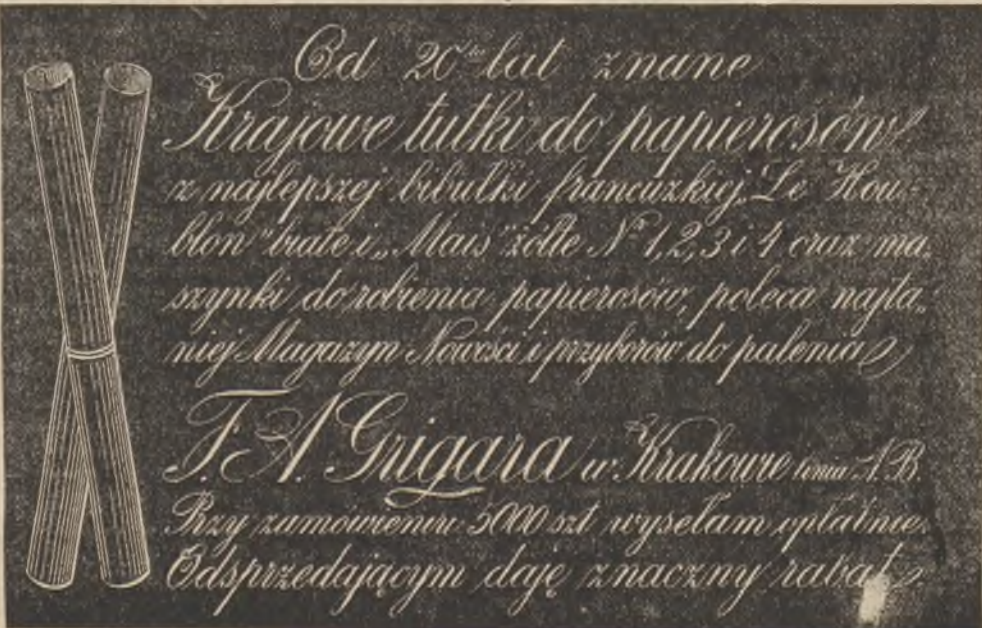 Od 20tu lat znane
Krajowe tutki do papierosów
z najlepszej bibułki francuzkiej „Le Hou-
blon" białe i „Mais" żółte No 1, 2, 3 i 4 oraz ma-
szynki do robienia papierosów, poleca najta-
niej Magazyn Nowości i przyborów do palenia
F. A. Grigara w Krakowie linia A. B.
Przy zamówieniu 5000 szt wysełam opłatnie.
Odsprzedającym daję znaczny rabat